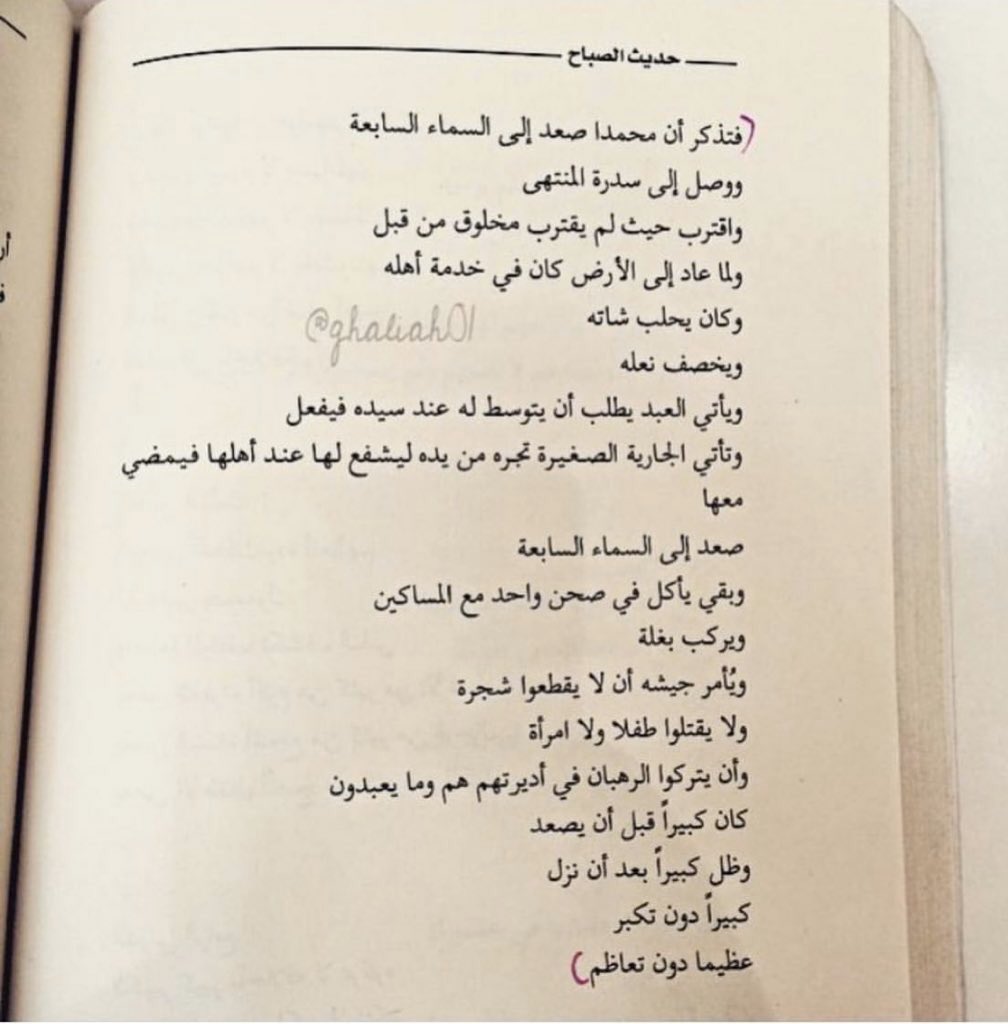 حديث الصباح
(فتذكر أن محمدا صعد إلى السماء السابعة
ووصل إلى سدرة المنتهى
واقترب حيث لم يقترب مخلوق من قبل
ولما عاد إلى الأرض كان في خدمة أهله
وكان يحلب شاته
@ghaliah01
ويخصف نعله
ويأتي العبد يطلب أن يتوسط له عند سيده فيفعل
وتأتي الجارية الصغيرة تجره من يده ليشفع لها عند أهلها فيمضي
معها
صعد إلى السماء السابعة
وبقي يأكل في صحن واحد مع المساكين
ويركب بغلة
ويُأمر جيشه أن لا يقطعوا شجرة
ولا يقتلوا طفلا ولا امرأة
وأن يتركوا الرهبان في أديرتهم هم وما يعبدون
كان كبيراً قبل أن يصعد
وظل كبيراً بعد أن نزل
كبيراً دون تكبر
عظيما دون تعاظم)